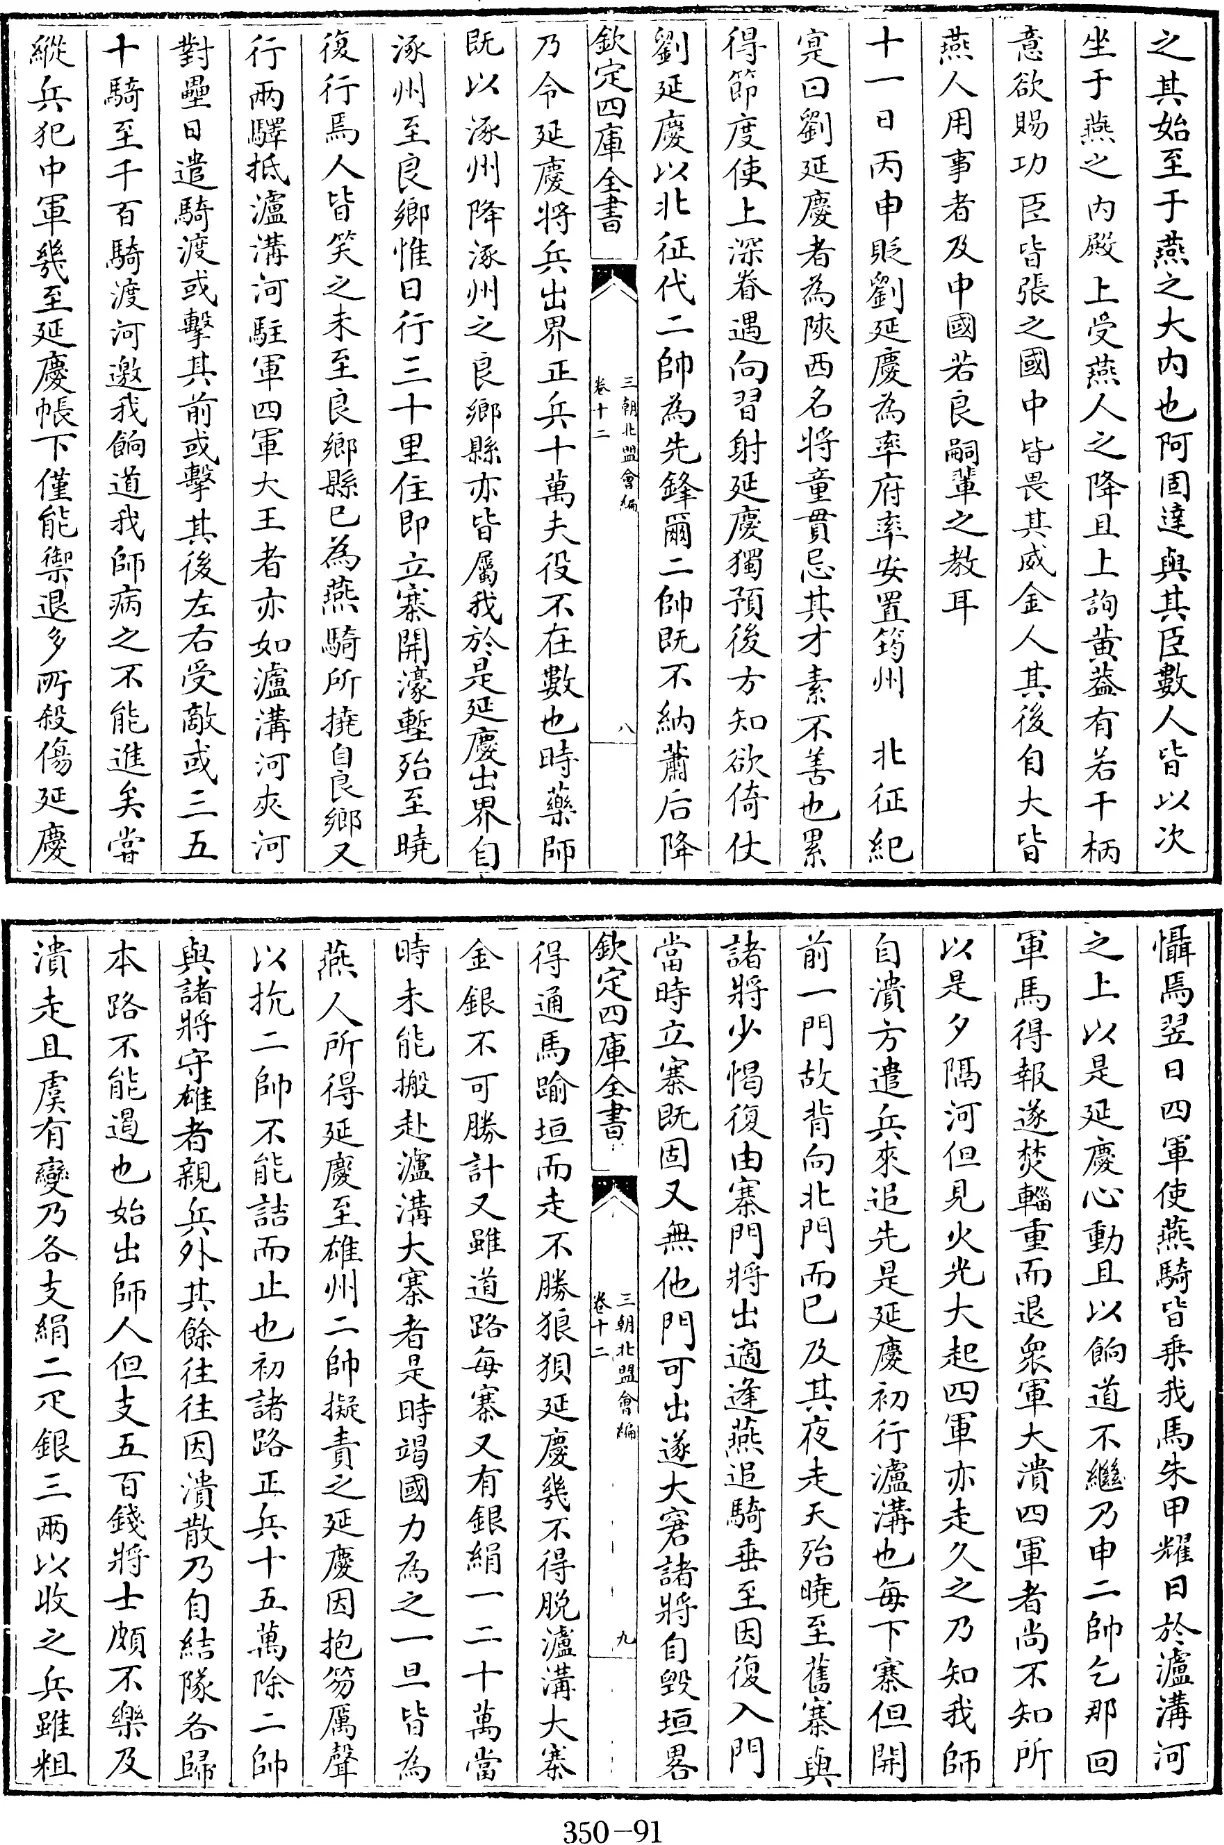 之其始至于燕之大内也阿固達與其臣數人皆以次
坐于燕之内殿上受燕人之降且上詢黃葢有若干柄
意欲賜功臣皆張之國中皆畏其威金人其後自大皆
燕人用事者及中國若良嗣輩之教耳
十一日丙申貶劉延慶為率府率安置筠州　北征紀
寔曰劉延慶者為陜西名將童貫忌其才素不善也累
得節度使上深眷遇向習射延慶獨預後方知欲倚仗
劉延慶以北征代二帥為先鋒爾二帥既不納蕭后降
欽定四庫全書
三朝北盟會編
卷十二
八
乃令延慶將兵出界正兵十萬夫役不在數也時藥師
既以涿州降涿州之良鄉縣亦皆屬我於是延慶出界自
涿州至良鄉惟日行三十里住即立寨開濠塹殆至曉
復行焉人皆笑之未至良鄉縣已為燕騎所撓自良鄉又
行兩驛抵瀘溝河駐軍四軍大王者亦如瀘溝河夾河
對壘日遣騎渡或擊其前或擊其後左右受敵或三五
十騎至千百騎渡河邀我餉道我師病之不能進矣嘗
縱兵犯中軍幾至延慶帳下僅能禦退多所殺傷延慶
懾焉翌日四軍使燕騎皆乘我馬朱甲耀日於瀘溝河
之上以是延慶心動且以餉道不繼乃申二帥乞那回
軍馬得報遂焚輜重而退衆軍大潰四軍者尚不知所
以是夕隔河但見火光大起四軍亦走久之乃知我師
自潰方遣兵來追先是延慶初行瀘溝也每下寨但開
前一門故背向北門而已及其夜走天殆曉至舊寨與
諸將少愒復由寨門將出適逢燕追騎垂至因復入門
當時立寨既固又無他門可出遂大窘諸將自毀垣畧
欽定四庫全書
三朝北盟會編
卷十二
九
得通馬踰垣而走不勝狼狽延慶幾不得脫瀘溝大寨
金銀不可勝計又雖道路每寨又有銀絹一二十萬當
時未能搬赴瀘溝大寨者是時竭國力為之一旦皆為
燕人所得延慶至雄州二帥擬責之延慶因抱笏厲聲
以抗二帥不能詰而止也初諸路正兵十五萬除二帥
與諸將守雄者親兵外其餘往往因潰散乃自結隊各歸
本路不能遏也始出師人但支五百錢將士頗不樂及
潰走且虞有變乃各支絹二疋銀三兩以收之兵雖粗
350-91